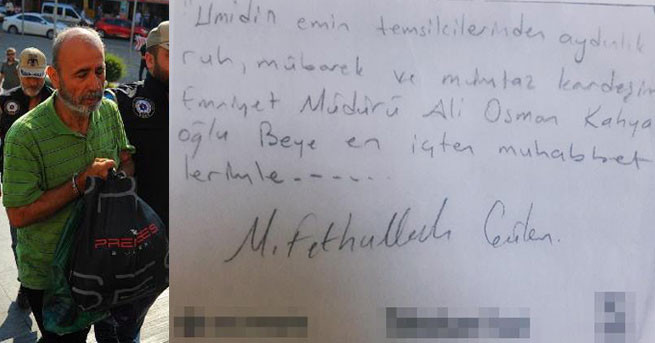 "Ümidin emin temsilcilerinden aydınlık
ruh, mübarek ve mümtaz kardeşim
Emniyet Müdürü Ali Osman Kahya
oğlu Beye en içten muhabbet
lerimle------
M. Fethullah Gülen.